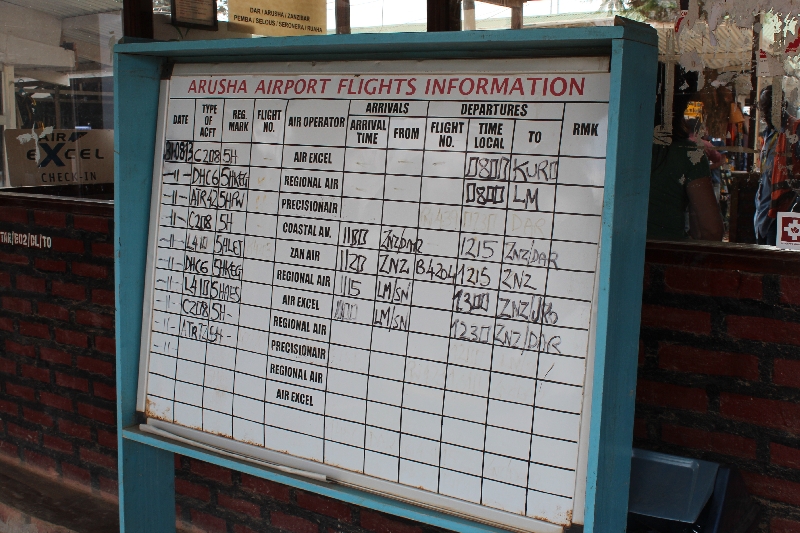 DAR / ARUSHA / ZANZIBAR
PEMBA / SELOUS / SERONERA / RUAHA
AIR
EXCEL
CHECK-IN
TAR/B02/DL/TO
ARUSHA AIRPORT FLIGHTS INFORMATION
DATE TYPE OF ACFT REG. MARK FLIGHT NO. AIR OPERATOR ARRIVALS ARRIVAL TIME FROM DEPARTURES FLIGHT NO. TIME LOCAL TO RMK
C208 5H AIR EXCEL - - 0800 KURO
-11- DHC6 5HREG REGIONAL AIR - - 0800 LM
-11- ATR42 5HPW PRECISIONAIR DAR
-11- C208 5H COASTAL AV. 1180 ZNZ/DAR 1215 ZNZ/DAR
-11- L410 ZAN AIR 1120 ZNZ B4204 1215 ZNZ
-11- DHC6 5HREG REGIONAL AIR 1115 LM/SN 1300 ZNZ/JRO
-11- L410 AIR EXCEL LM/SN 1230 ZNZ/DAR
-11- C208 5H- REGIONAL AIR
-11- ATR72 5H- PRECISIONAIR
-11- REGIONAL AIR
AIR EXCEL